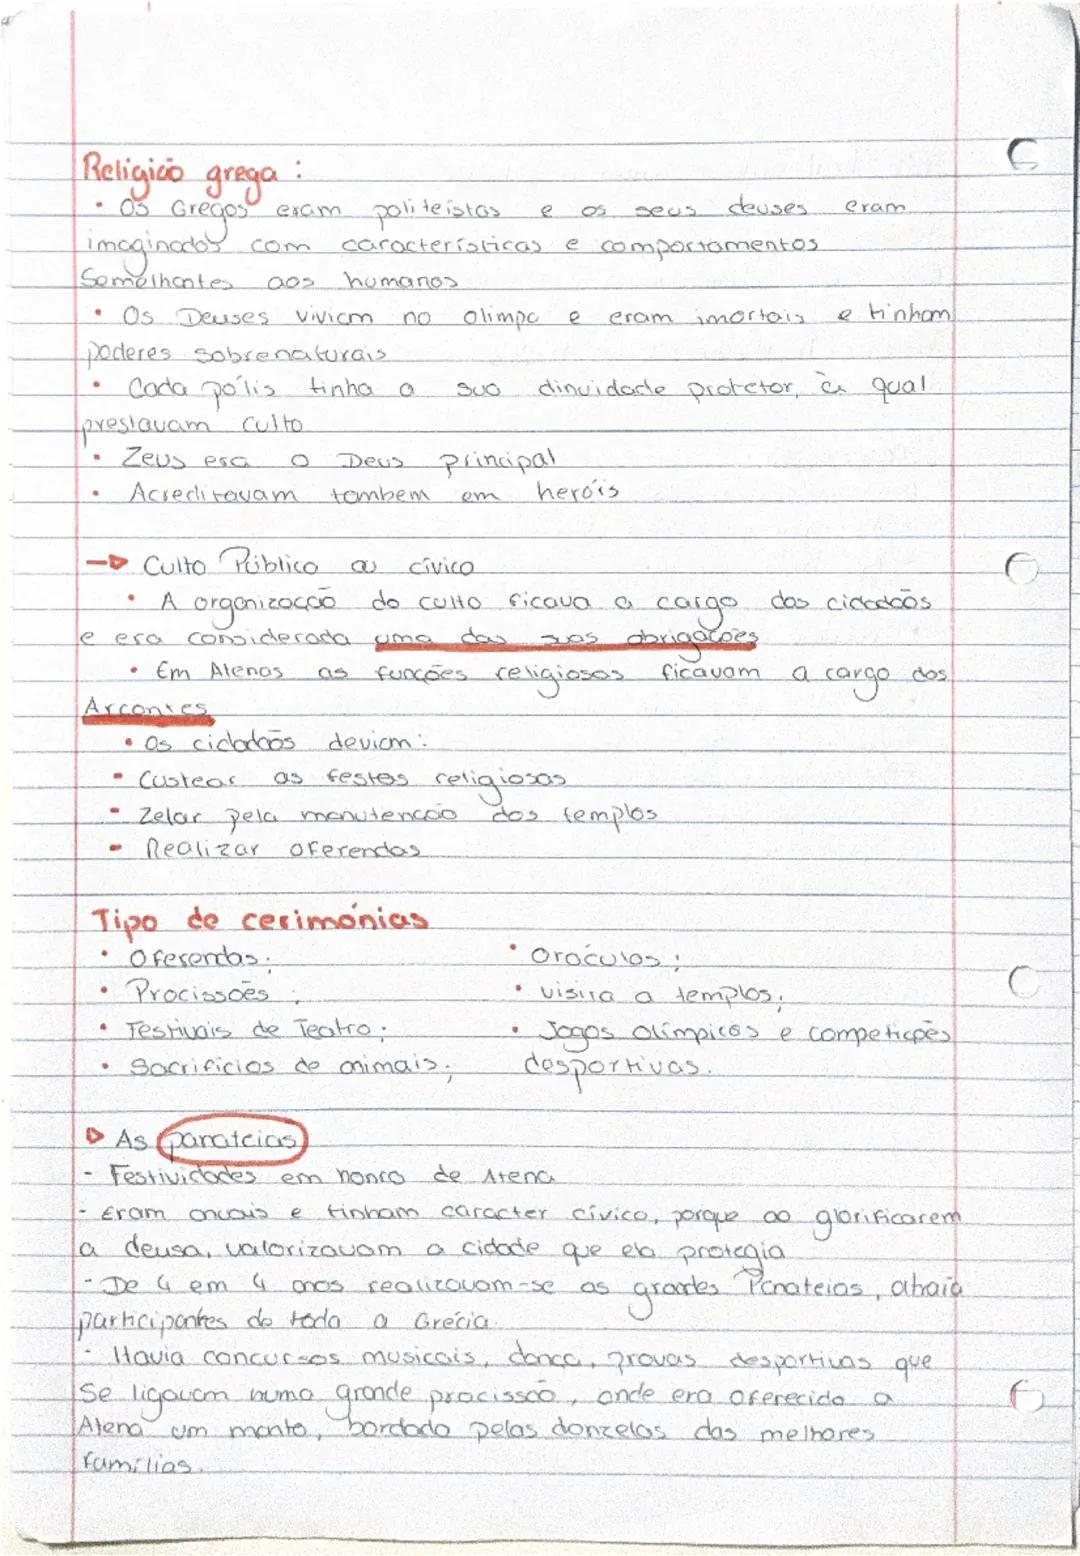 Religião grega :
• Os Gregos eram politeistas e os seus deuses eram
imaginados com características e comportamentos
Semelhantes aos humanos
• Os Deuses viviam no olimpo e eram imortais e tinham
poderes sobrenaturais
• Cada pólis tinha a sua dinvidade protetor, à qual
prestavam culto
• Zeus era o Deus principal
• Acreditavam tambem em heróis
→ Culto Público ou cívico
• A organização do culto ficava a cargo dos cidadãos
e era considerada uma das suas obrigações
• Em Atenas as funções religiosas ficavam a cargo dos
Arcontes
• Os cidadãos deviam:
- Custear as festas religiosas
- Zelar pela manutenção dos templos
- Realizar oferendas
Tipo de cerimónias
• Oferendas;
• Procissões ;
• Festivais de Teatro;
• Sacrificios de animais;
• Oráculos ;
• visita a templos;
• Jogos Olímpicos e competições
desportivas.
▷ As panateias
- Festividades em honra de Atena
- Eram anuais e tinham caracter cívico, porque ao glorificarem
a deusa, valorizavam a cidade que ela protegia
- De 4 em 4 anos realizavam-se as grandes Panateias, atraía
participantes de toda a Grécia.
- Havia concursos musicais, dança, provas desportivas que
Se ligavam numa grande procissão, onde era oferecido a
Atena um manto, bordado pelas donzelas das melhores
famílias.